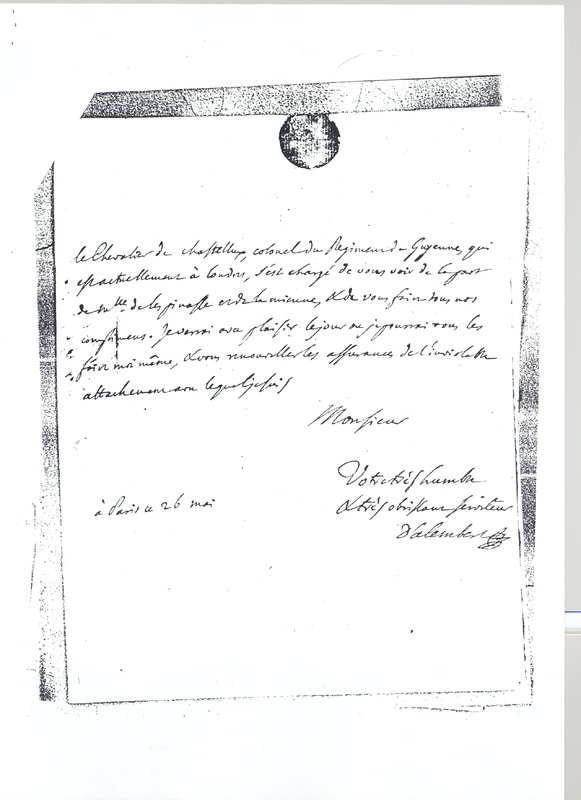 le Chevalier de Chastellux, colonel du Regiment de Guyenne, qui
est actuellement à Londres, s'est chargé de vous voir de la part
de mlle. de lespinasse et de la mienne, & de vous faire tous nos
complimens. Je verrai avec plaisir le jour ou je pourrai vous les
faire moi même, & vous renouveller les assurances de l'inviolable
attachement avec lequel je suis
Monsieur
Votre très humble
& très obeissant serviteur
D'alembert
à Paris ce 26 mai